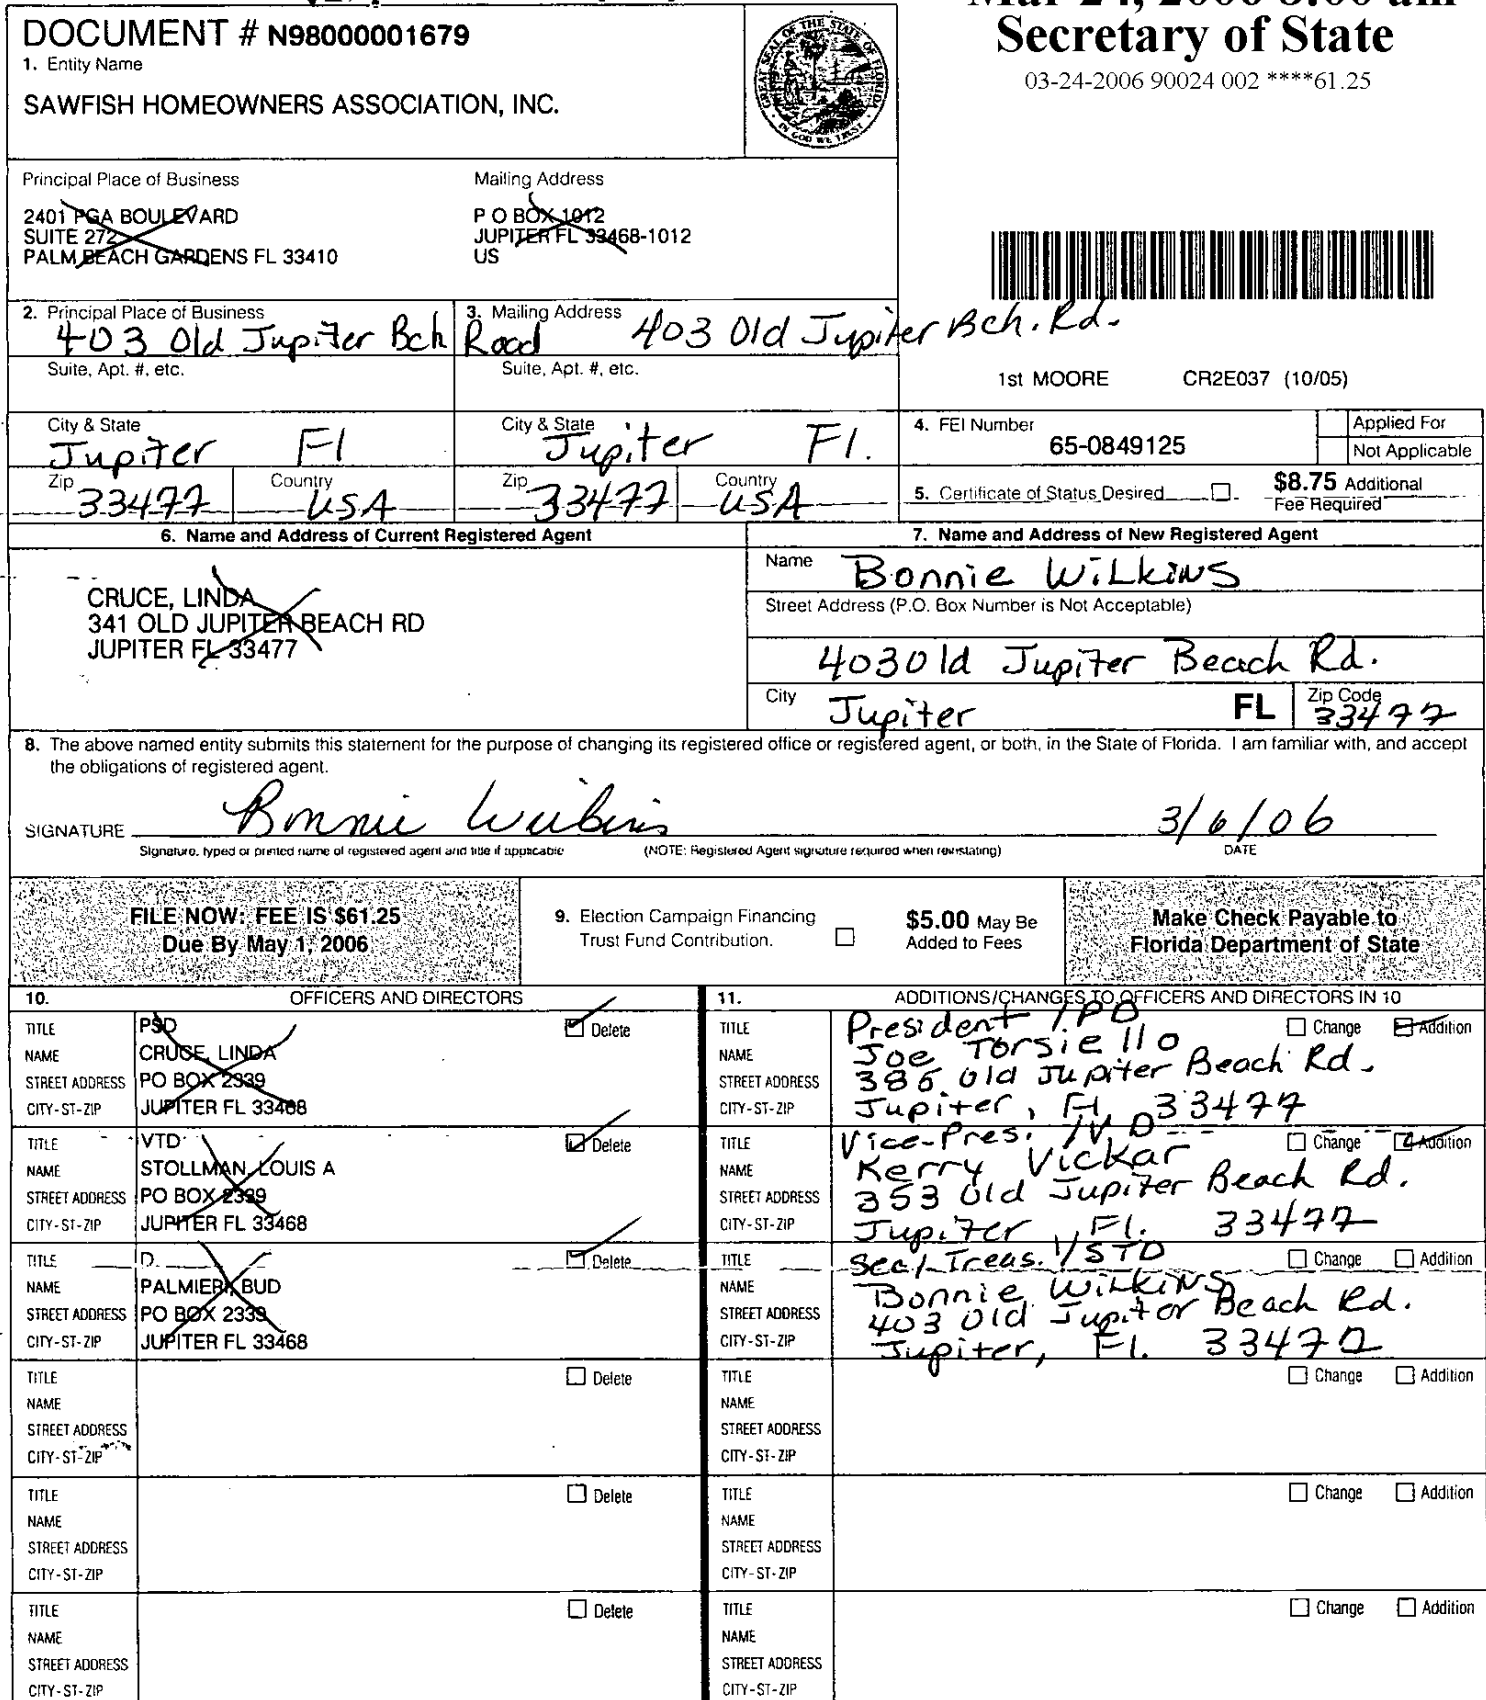 Secretary of State
03-24-2006 90024 002 ****61.25
DOCUMENT # N98000001679
1. Entity Name
SAWFISH HOMEOWNERS ASSOCIATION, INC.
GREAT SEAL OF THE STATE OF FLORIDA
IN GOD WE TRUST
Principal Place of Business
2401 PGA BOULEVARD
SUITE 272
PALM BEACH GARDENS FL 33410
Mailing Address
P O BOX 1012
JUPITER FL 33468-1012
US
2. Principal Place of Business
403 Old Jupiter Bch Road
3. Mailing Address
403 Old Jupiter Bch. Rd.
Suite, Apt. #, etc.
Suite, Apt. #, etc.
1st MOORE CR2E037 (10/05)
City & State
Jupiter Fl
City & State
Jupiter Fl.
Zip
33477
Country
USA
Zip
33477
Country
USA
4. FEI Number
65-0849125
Applied For
Not Applicable
5. Certificate of Status Desired
$8.75 Additional
Fee Required
6. Name and Address of Current Registered Agent
CRUCE, LINDA
341 OLD JUPITER BEACH RD
JUPITER FL 33477
7. Name and Address of New Registered Agent
Name
Bonnie Wilkins
Street Address (P.O. Box Number is Not Acceptable)
403 Old Jupiter Beach Rd.
City
Jupiter
FL
Zip Code
33477
8. The above named entity submits this statement for the purpose of changing its registered office or registered agent, or both, in the State of Florida. I am familiar with, and accept
the obligations of registered agent.
SIGNATURE Bonnie Wilkins 3/6/06
Signature, typed or printed name of registered agent and title if applicable (NOTE: Registered Agent signature required when reinstating) DATE
FILE NOW: FEE IS $61.25
Due By May 1, 2006
9. Election Campaign Financing
Trust Fund Contribution.
$5.00 May Be
Added to Fees
Make Check Payable to
Florida Department of State
10. OFFICERS AND DIRECTORS
TITLE PSD Delete
NAME CRUCE, LINDA
STREET ADDRESS PO BOX 2339
CITY-ST-ZIP JUPITER FL 33468
TITLE VTD Delete
NAME STOLLMAN, LOUIS A
STREET ADDRESS PO BOX 2339
CITY-ST-ZIP JUPITER FL 33468
TITLE D Delete
NAME PALMIERI, BUD
STREET ADDRESS PO BOX 2339
CITY-ST-ZIP JUPITER FL 33468
TITLE Delete
NAME
STREET ADDRESS
CITY-ST-ZIP
TITLE Delete
NAME
STREET ADDRESS
CITY-ST-ZIP
TITLE Delete
NAME
STREET ADDRESS
CITY-ST-ZIP
11. ADDITIONS/CHANGES TO OFFICERS AND DIRECTORS IN 10
TITLE President / PD Change Addition
NAME Joe Torsiello
STREET ADDRESS 385 Old Jupiter Beach Rd.
CITY-ST-ZIP Jupiter, Fl. 33477
TITLE Vice-Pres. / VD Change Addition
NAME Kerry Vickar
STREET ADDRESS 353 Old Jupiter Beach Rd.
CITY-ST-ZIP Jupiter, Fl. 33477
TITLE Sec/Treas. / STD Change Addition
NAME Bonnie Wilkins
STREET ADDRESS 403 Old Jupiter Beach Rd.
CITY-ST-ZIP Jupiter, Fl. 33477
TITLE Change Addition
NAME
STREET ADDRESS
CITY-ST-ZIP
TITLE Change Addition
NAME
STREET ADDRESS
CITY-ST-ZIP
TITLE Change Addition
NAME
STREET ADDRESS
CITY-ST-ZIP